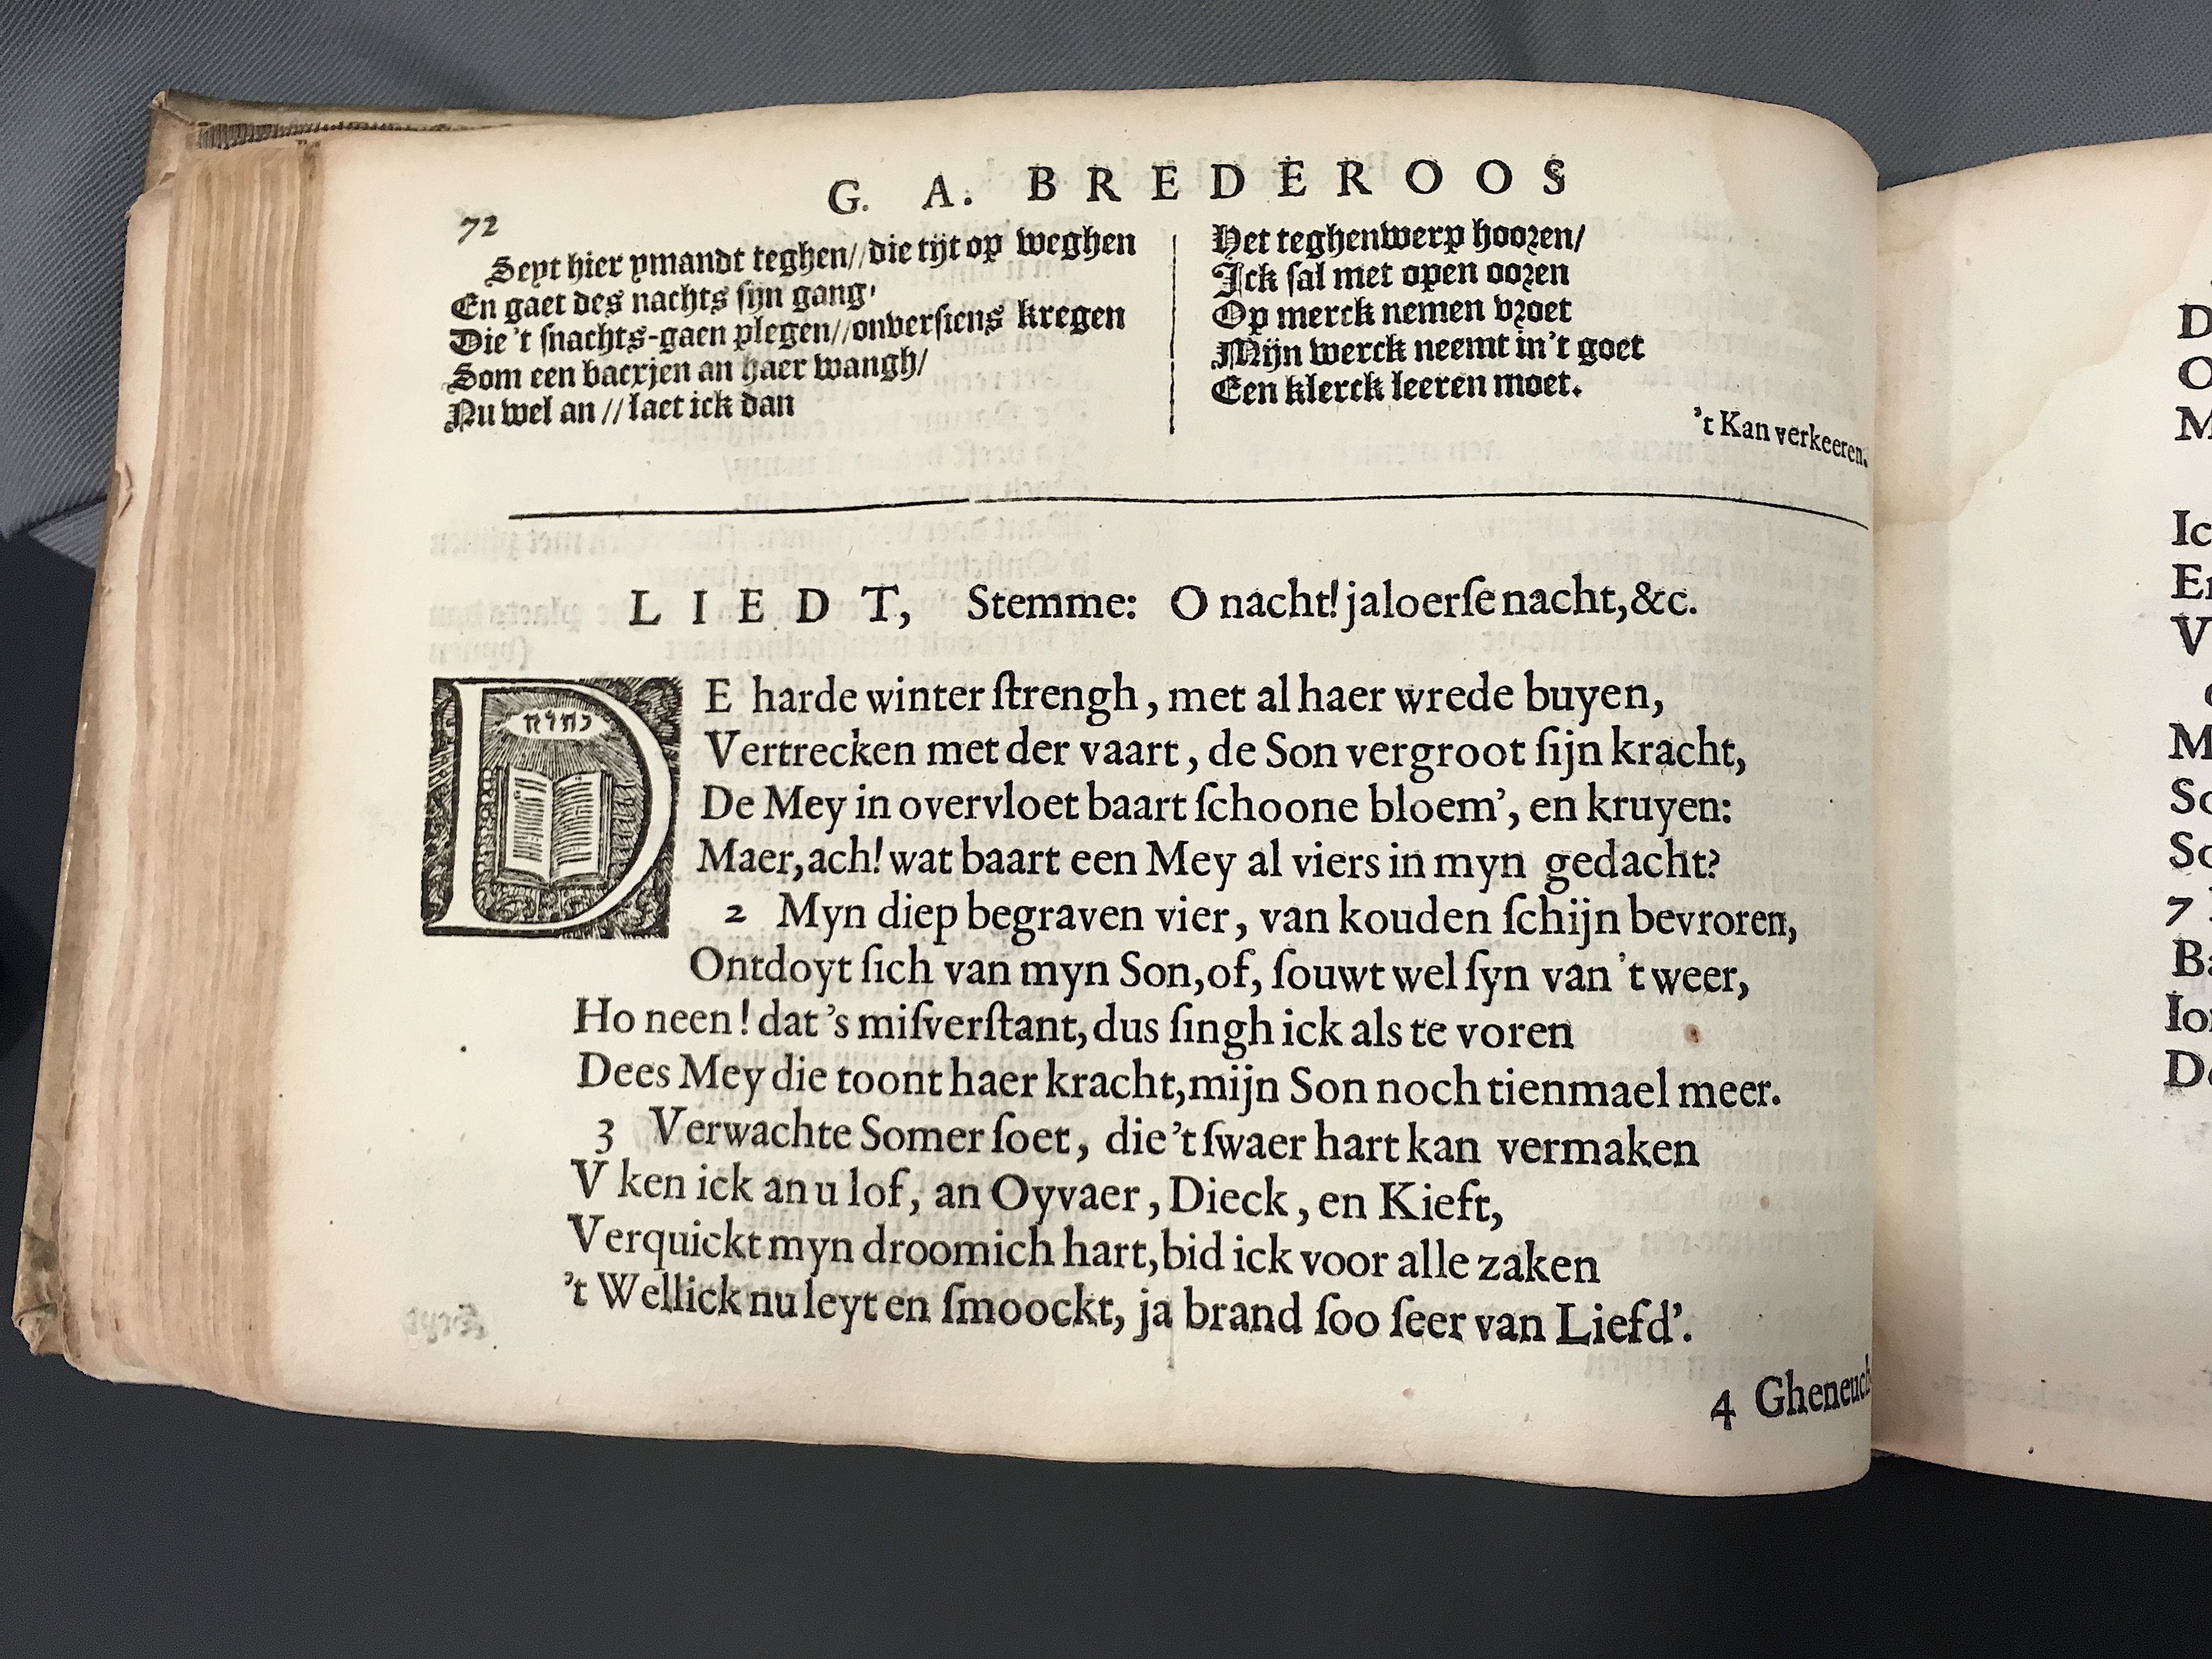 G. A. BREDEROOS
72
Seyt hier ymandt teghen//die tijt op weghen
En gaet des nachts sijn gang,
Die 't ſnachts-gaen plegen//onverſiens kregen
Som een backjen an haer wangh/
Nu wel an // laet ick dan
Het teghenwerp hooren/
Ick ſal met open ooren
Op merck nemen vroet
Mijn werck neemt in 't goet
Een klerck leeren moet.
't Kan verkeeren.
LIEDT, Stemme: O nacht! jaloerſe nacht, &c.
DE harde winter ſtrengh, met al haer wrede buyen,
Vertrecken met der vaart, de Son vergroot ſijn kracht,
De Mey in overvloet baart ſchoone bloem', en kruyen:
Maer, ach! wat baart een Mey al viers in myn gedacht?
2 Myn diep begraven vier, van kouden ſchijn bevroren,
Ontdoyt ſich van myn Son, of, ſouwt wel ſyn van 't weer,
Ho neen! dat 's miſverſtant, dus ſingh ick als te voren
Dees Mey die toont haer kracht, mijn Son noch tienmael meer.
3 Verwachte Somer ſoet, die 't ſwaer hart kan vermaken
V ken ick an u lof, an Oyvaer, Dieck, en Kieft,
Verquickt myn droomich hart, bid ick voor alle zaken
't Wellick nu leyt en ſmoockt, ja brand ſoo ſeer van Liefd'.
4 Gheneuch